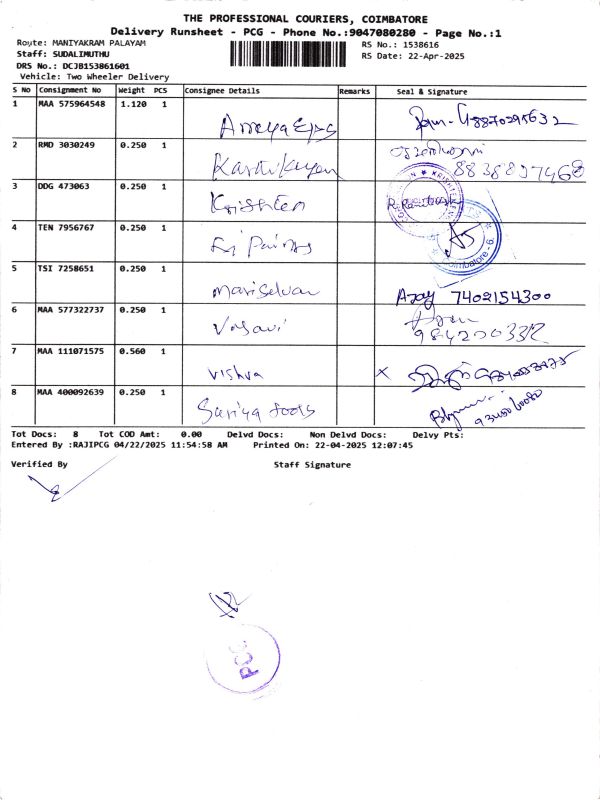 THE PROFESSIONAL COURIERS, COIMBATORE
Delivery Runsheet - PCG - Phone No.:9047080280 - Page No.:1
Route: MANIYAKRAM PALAYAM
RS No.: 1538616
Staff: SUDALIMUTHU
RS Date: 22-Apr-2025
DRS No.: DCJB153861601
Vehicle: Two Wheeler Delivery
S No Consignment No Weight PCS Consignee Details Remarks Seal & Signature
1 MAA 575964548 1.120 1
2 RMD 3030249 0.250 1 Karthikeyan
3 DDG 473063 0.250 1 Krishten
4 TEN 7956767 0.250 1 Coimbatore - 6.
5 TSI 7258651 0.250 1 Mariselvan Ajay 7402154300
6 MAA 577322737 0.250 1 Vasavi
7 MAA 111071575 0.560 1 Vishva X
8 MAA 400092639 0.250 1 Suriya foods
Tot Docs: 8 Tot COD Amt: 0.00 Delvd Docs: Non Delvd Docs: Delvy Pts:
Entered By :RAJIPCG 04/22/2025 11:54:58 AM Printed On: 22-04-2025 12:07:45
Verified By Staff Signature
PCG